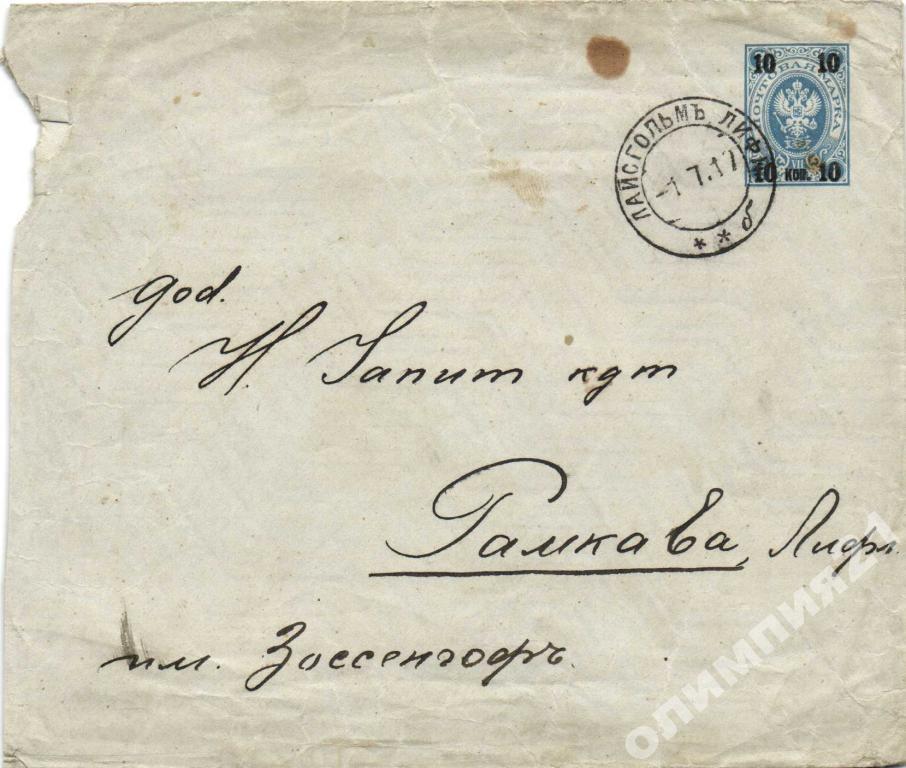 10 10
ПОЧТОВАЯ МАРКА
10 КОП. 10
ЛАЙСГОЛЬМЪ ЛИФЛ.
-1.7.17
* * б
god.
Н. Запит кдт
Рамкава, Лифл.
им. Зоссенгофъ.
ОЛИМПИЯ21